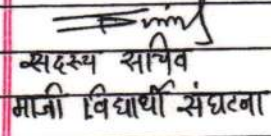 सदस्य सचिव
माजी विद्यार्थी संघटना